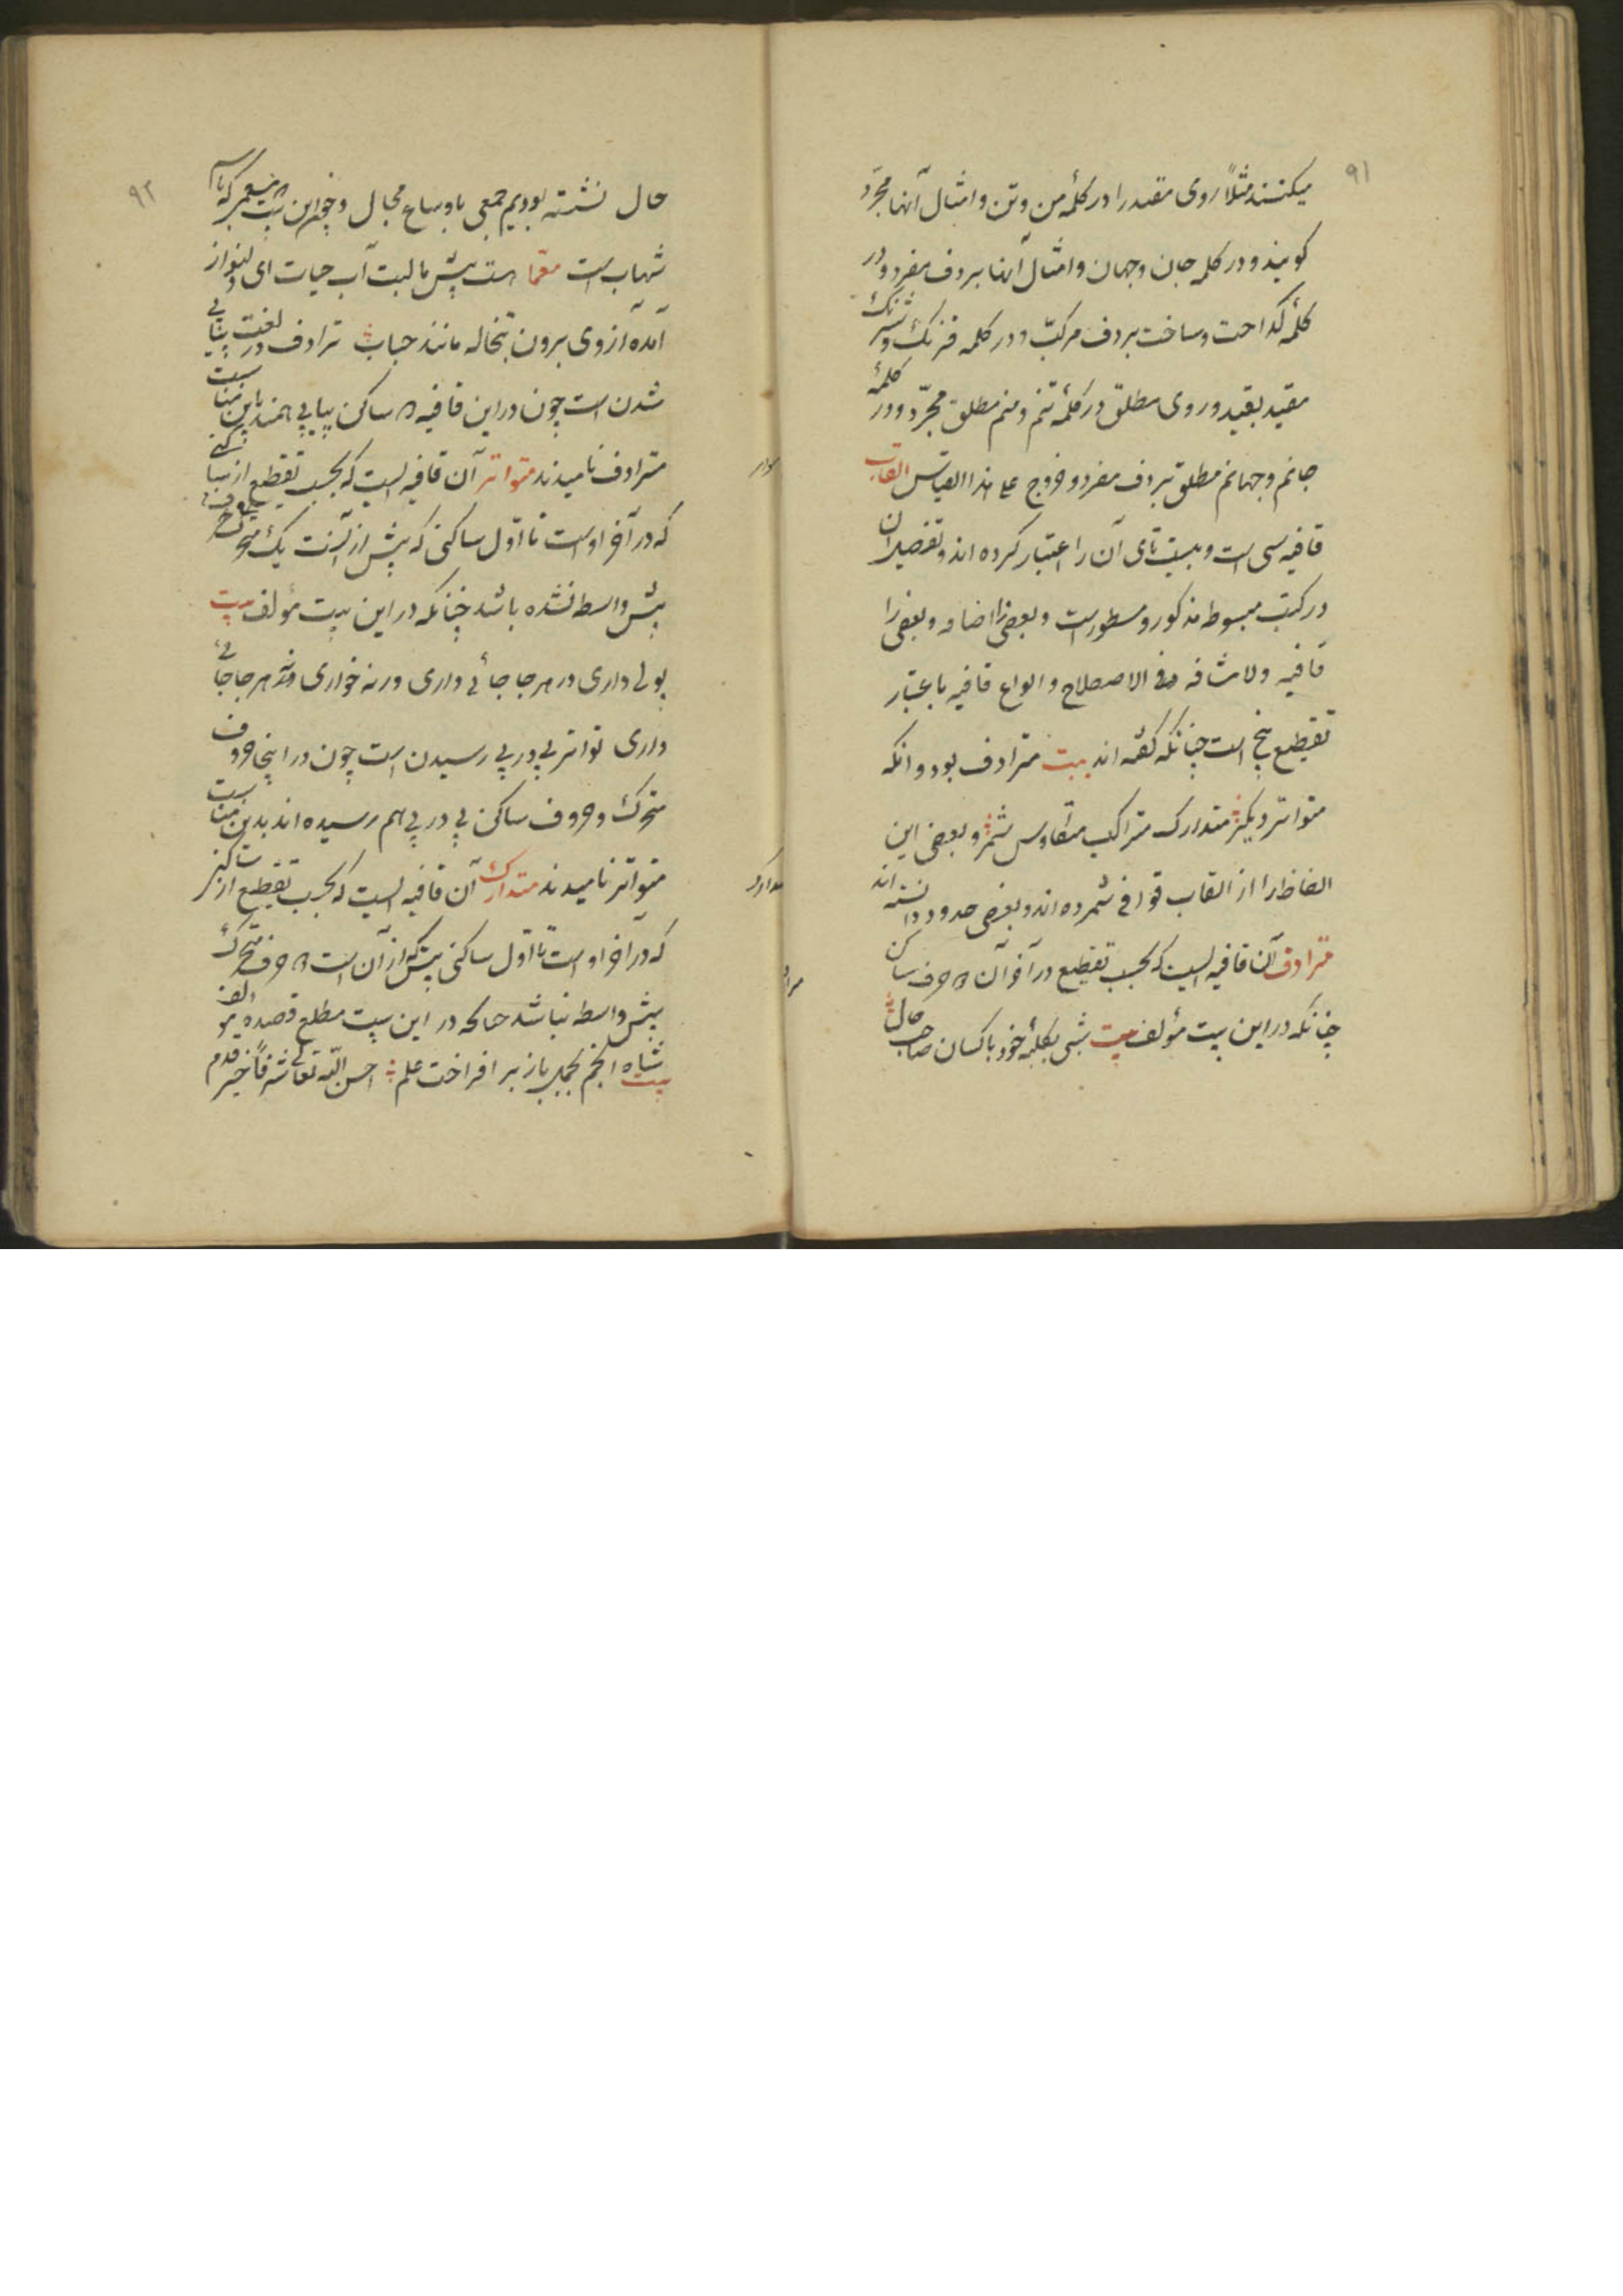 ۹۱
میکنند مثلاً روی مقید را در کلمهٔ من و تن و امثال آنها مجرّد
کویند و در کلمه جان و جهان و امثال آنها بردف مفرد و در
کلمهٔ کداخت و ساخت بردف مرکبّ و در کلمه فرنک و شرنک
مقید بقید و روی مطلق در کلمهٔ تنم و منم مطلق مجرّد و در کلمهٔ
جانم و جهانم مطلق بردف مفرد و خروج علی هذا القیاس القاب
قافیه سی است و بیست تای آن را اعتبار کرده اند و تفصیل آن
در کتب مبسوط مذکور و مسطور است و بعضی را اضافه و بعضی را
قافیه ولا مشاقه فی الاصطلاح و انواع قافیه باعتبار
تقطیع پنج است چنانکه کفته اند بیت مترادف بود و انکه
متواتر دیکر متدارک متراکب متکاوس شمر و بعضی این
الفاظ را از القاب قوافی شمرده اند و بعضی حدود دانسته اند
مترادف آن قافیه ایست که بحسب تقطیع در آخر آن ۲ حرف ساکن
چنانکه در این بیت مؤلف بیت شبی بکلبهٔ خود با کسان صاحب حال
۹۲
حال نشسته بودیم جمعی مجال و چو این بیت که بنام
شهاب است معمّا هست پیش ما لبت آب حیات ای دلنواز
آمده از وی برون تبخاله مانند حباب ترادف در لغت پیاپی
شدن است چون در این قافیه ۲ ساکن پیاپی همند باین مناسبت
مترادف نامیدند متواتر آن قافیه ایست که بحسب تقطیع از ساکنی
که در آخر اوست تا اوّل ساکنی که پیش از آنست یک حرف متحرک
بیش واسط نشده باشد چنانکه در این بیت مؤلف بیت
پولی داری در هر جا جائی داری ورنه خواری هر جا جائی
داری تواتر پی در پی رسیدن است چون در اینجا حروف
متحرک و حروف ساکن پی در پی هم رسیده اند بدین مناسبت
متواتر نامیدند متدارک آن قافیه ایست که بحسب تقطیع از ساکنی
که در آخر اوست تا اوّل ساکنی که پیش از آن است ۲ حرف متحرک
بیش واسط نباشد چنانکه در این بیت مطلع قصیده مؤلف
بیت شاه انجم بحمل باز بر افراخت علم احسن اللّه تعالی شرفاً خیر قدم